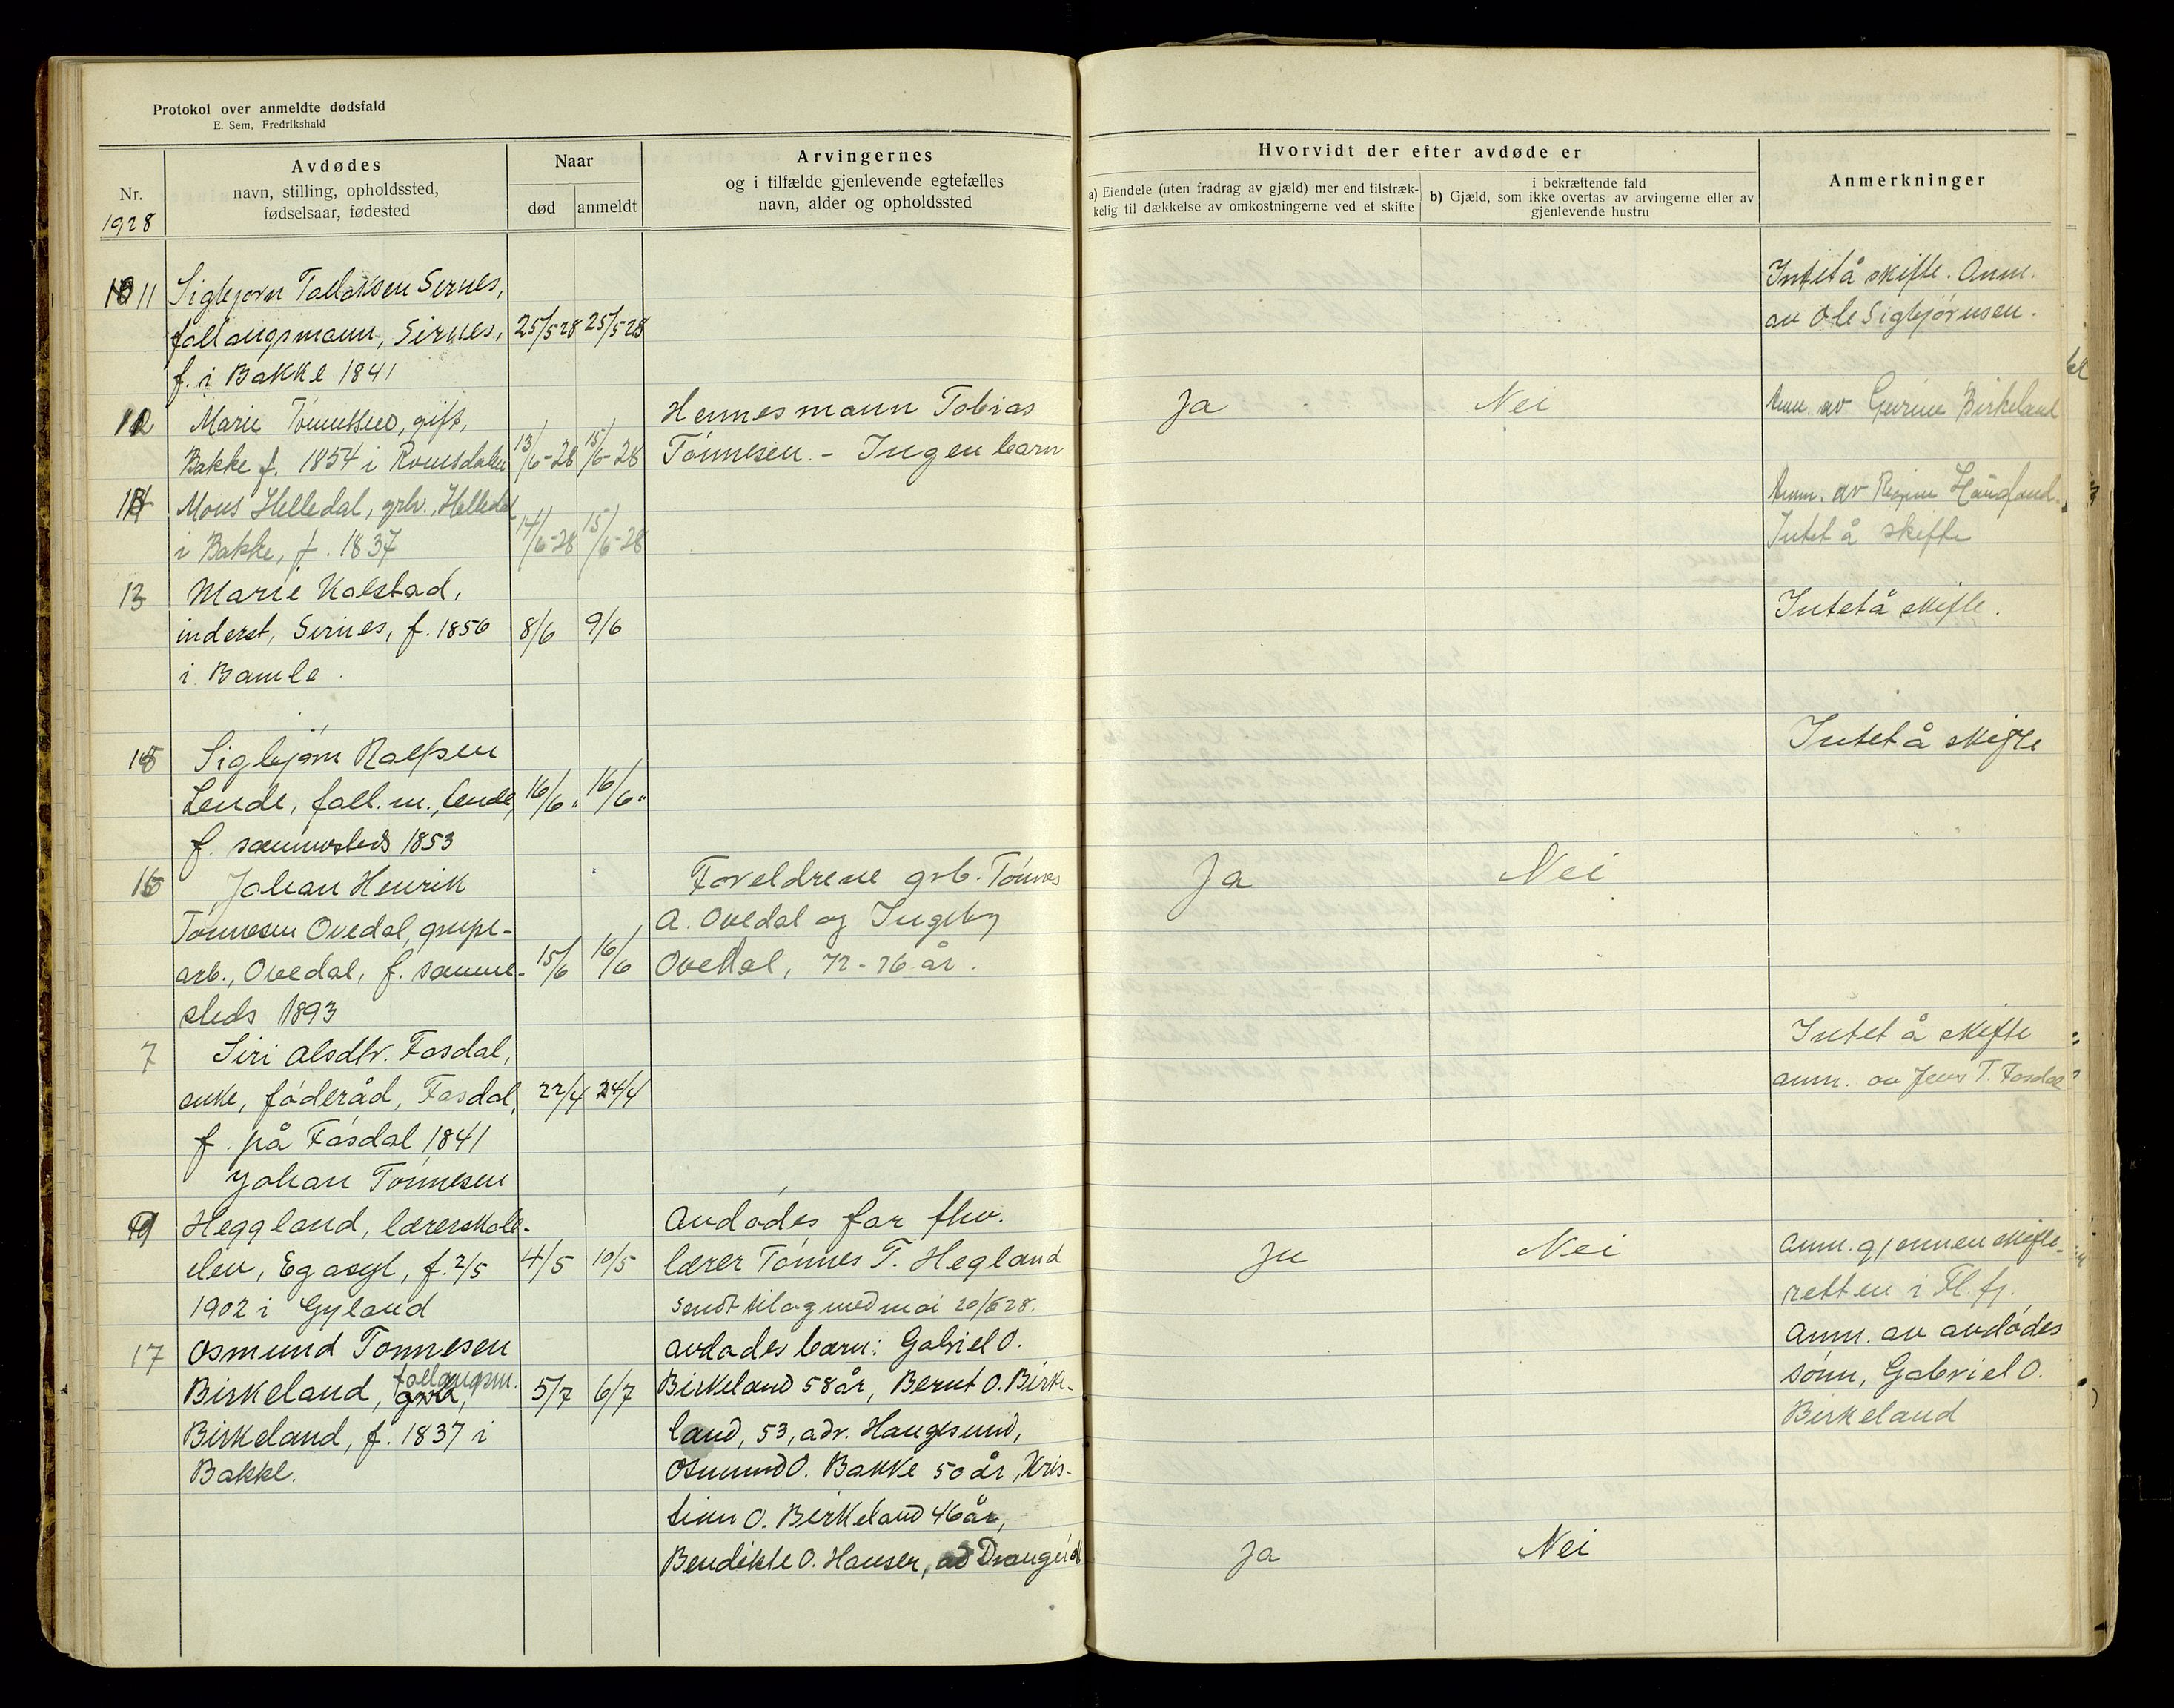 Protokol over anmeldte dødsfald
E. Sem, Fredrikshald
Nr.
1928
Avdødes
navn, stilling, opholdssted,
fødselsaar, fødested
Naar
død
anmeldt
Arvingernes
og i tilfælde gjenlevende egtefælles
navn, alder og opholdssted
Hvorvidt der efter avdøde er
a) Eiendele (uten fradrag av gjæld) mer end tilstræk-
kelig til dækkelse av omkostningerne ved et skifte
i bekræftende fald
b) Gjæld, som ikke overtas av arvingerne eller av
gjenlevende hustru
Anmerkninger
11 Sigbjørn Tollaksen Sernes,
follaugsmann, Sirnes, 25/5 28 25/5-28
f. i Bakke 1841
Intet å skifte. Anm.
av Ole Sigbjørnsen.
12 Marie Tønnessen, gift,
Bakke f. 1854 i Romsdalen 13/6-28 15/6-28
Hennes mann Tobias
Tønnesen. - Ingen barn
Ja
Nei
Anm. av Gurine Birkeland
14 Mons Helledal, grbr., Helledal
i Bakke, f. 1837 14/6-28 15/6-28
Anm. av Regine Haugland.
Intet å skifte
13 Marie Kalstad,
inderst, Sirnes, f. 1856 8/6 9/6
i Bamle.
Intet å skifte.
15 Sigbjørn Rolfsen
Lende, foll.m., Lende, 16/6 " 16/6 "
f. sammesteds 1853
Intet å skifte
16 Johan Henrik
Tønnesen Ovedal, grube-
arb., Ovedal, f. samme- 15/6 16/6
steds 1893
Foreldrene grb. Tønnes
A. Ovedal og Ingeborg
Ovedal, 72-76 år.
Ja
Nei
7 Siri Alsdtr. Fosdal,
enke, føderåd, Fosdal, 22/4 24/4
f. på Fosdal 1841
Intet å skifte
anm. av Jens T. Fosdal
9 Johan Tønnesen
Heggland, lærerskole-
elev, Eg asyl, f. 2/5 4/5 10/5
1902 i Gyland
Avdødes far fhv.
lærer Tønnes T. Hegland
Ja
Nei
Anm. gjennem skifte-
retten i Fl. fj.
17 Osmund Tønnesen
Birkeland, follaugsm.
Birkeland, f. 1837 i 5/7 6/7
Bakke.
avdødes barn: Gabriel O.
Birkeland 58 år, Bernt O. Birke-
land, 53, adr. Haugesund,
Osmund O. Bakke 50 år, Kris-
tian O. Birkeland 46 år,
Bendikte O. Hansen, ad Drangeid
Ja
Nei
Anm. av avdødes
sønn, Gabriel O.
Birkeland